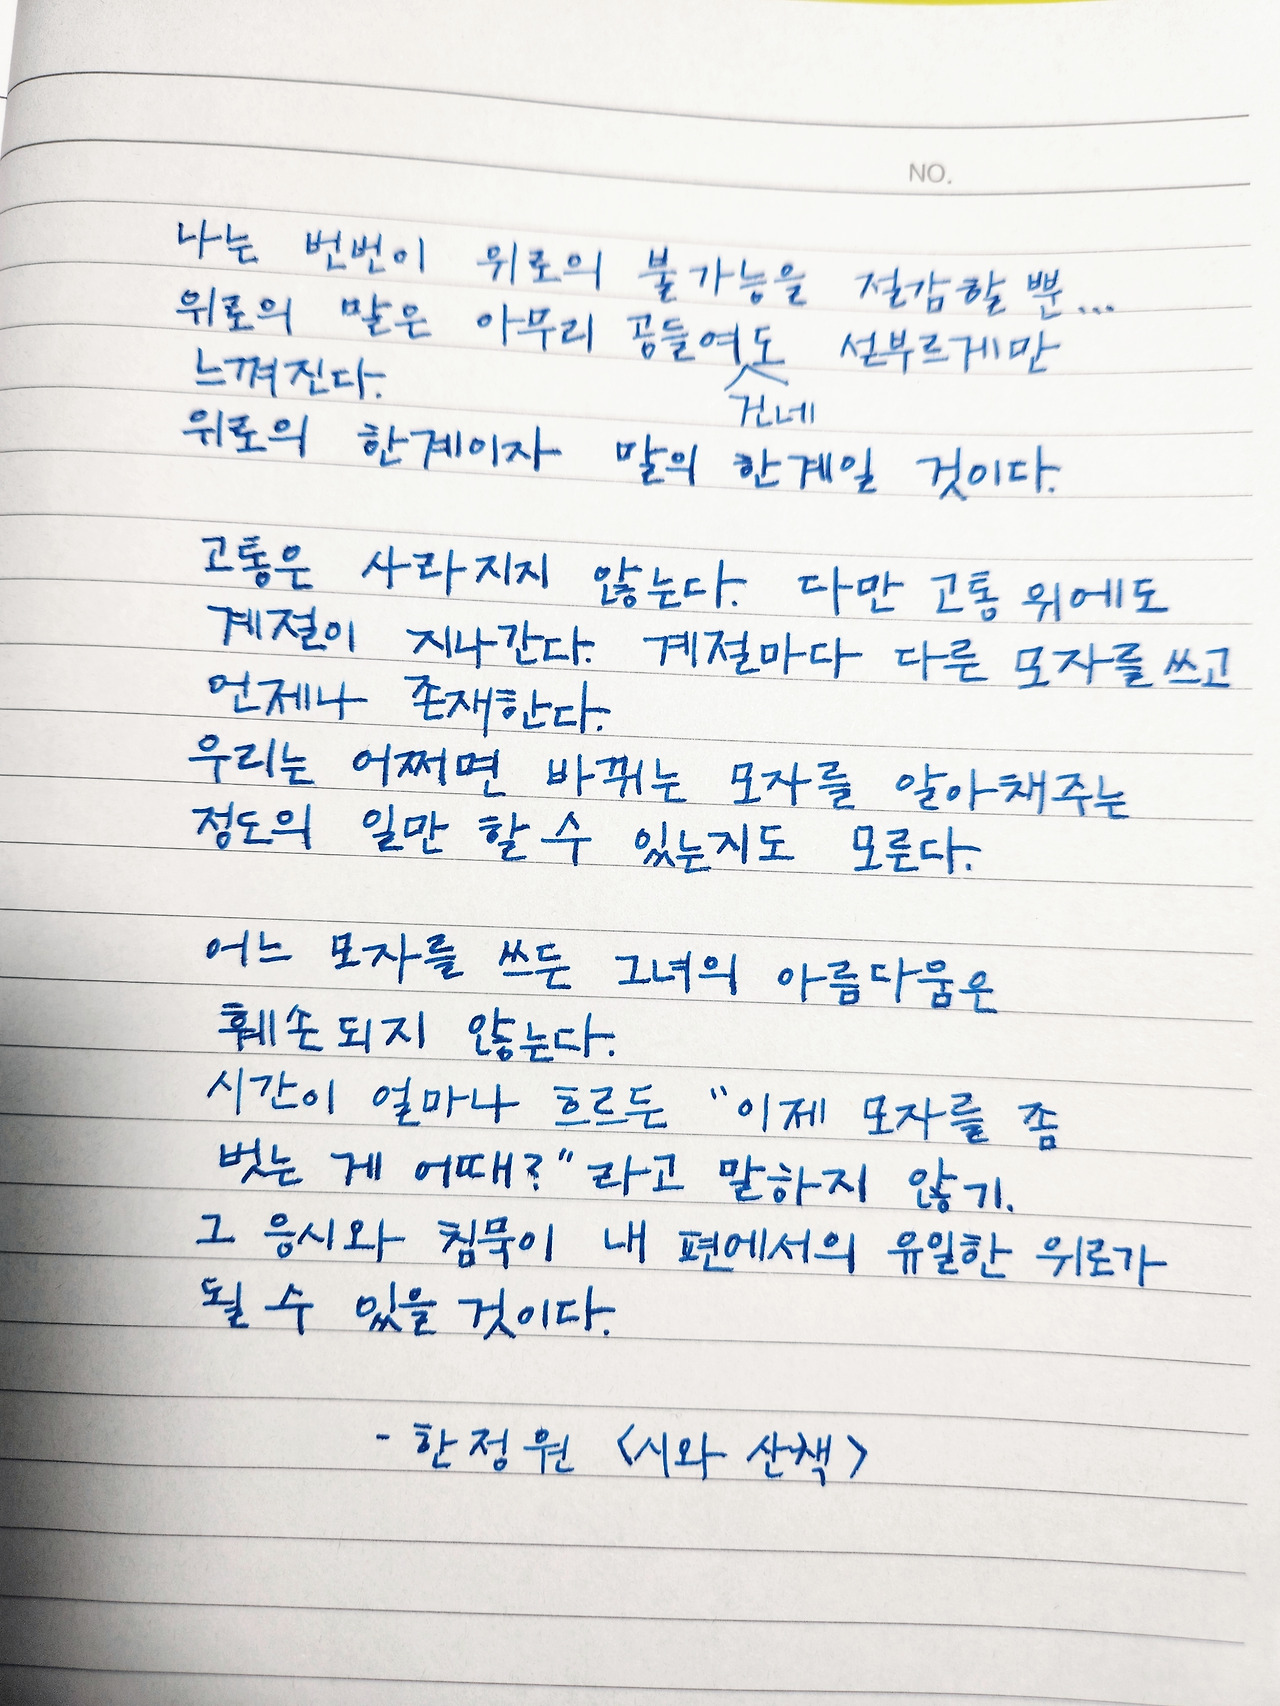 NO.
나는 번번이 위로의 불가능을 절감할 뿐...
위로의 말은 아무리 공들여도 섣부르게만
건네
느껴진다.
위로의 한계이자 말의 한계일 것이다.
고통은 사라지지 않는다. 다만 고통 위에도
계절이 지나간다. 계절마다 다른 모자를 쓰고
언제나 존재한다.
우리는 어쩌면 바뀌는 모자를 알아채주는
정도의 일만 할 수 있는지도 모른다.
어느 모자를 쓰든 그녀의 아름다움은
훼손되지 않는다.
시간이 얼마나 흐르든 "이제 모자를 좀
벗는 게 어때?"라고 말하지 않기.
그 응시와 침묵이 내 편에서의 유일한 위로가
될 수 있을 것이다.
- 한정원 <시와 산책>